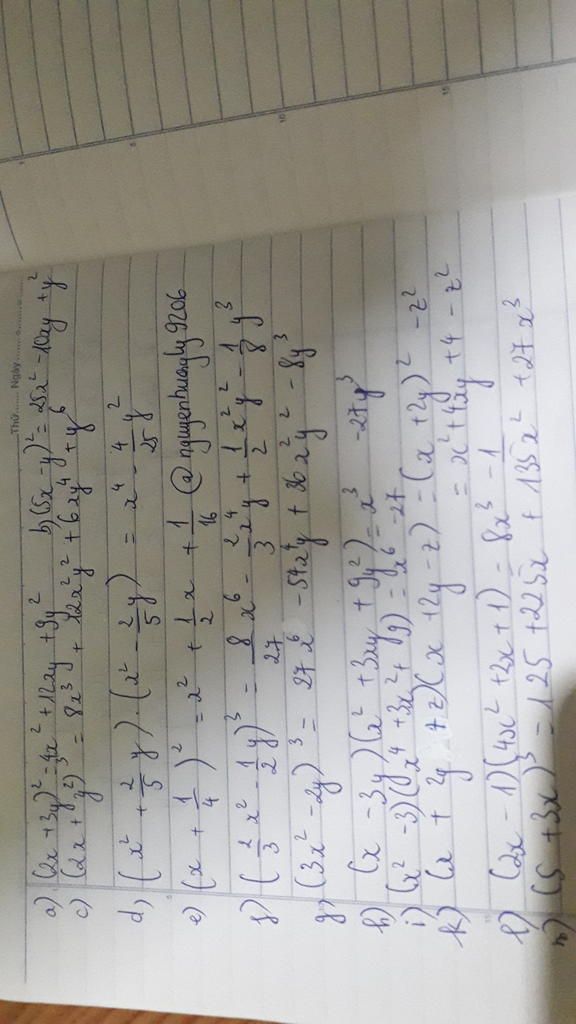 Thứ ........ Ngày ........
a) (2x + 3y)² = 4x² + 12xy + 9y² b) (5x - y)² = 25x² - 10xy + y²
c) (2x + y²)³ = 8x³ + 12x²y² + 6xy⁴ + y⁶
d) (x² + 2/5 y) . (x² - 2/5 y) = x⁴ - 4/25 y²
e) (x + 1/4)² = x² + 1/2 x + 1/16 @nguyenhuongly9206
f) (2/3 x² - 1/2 y)³ = 8/27 x⁶ - 2/3 x⁴y + 1/2 x²y² - 1/8 y³
g) (3x² - 2y)³ = 27x⁶ - 54x⁴y + 36x²y² - 8y³
h) (x - 3y)(x² + 3xy + 9y²) = x³ - 27y³
i) (x² - 3)(x⁴ + 3x² + 9) = x⁶ - 27
k) (x + 2y + z)(x + 2y - z) = (x + 2y)² - z²
= x² + 4xy + 4 - z²
l) (2x - 1)(4x² + 2x + 1) = 8x³ - 1
(5 + 3x)³ = 125 + 225x + 135x² + 27x³